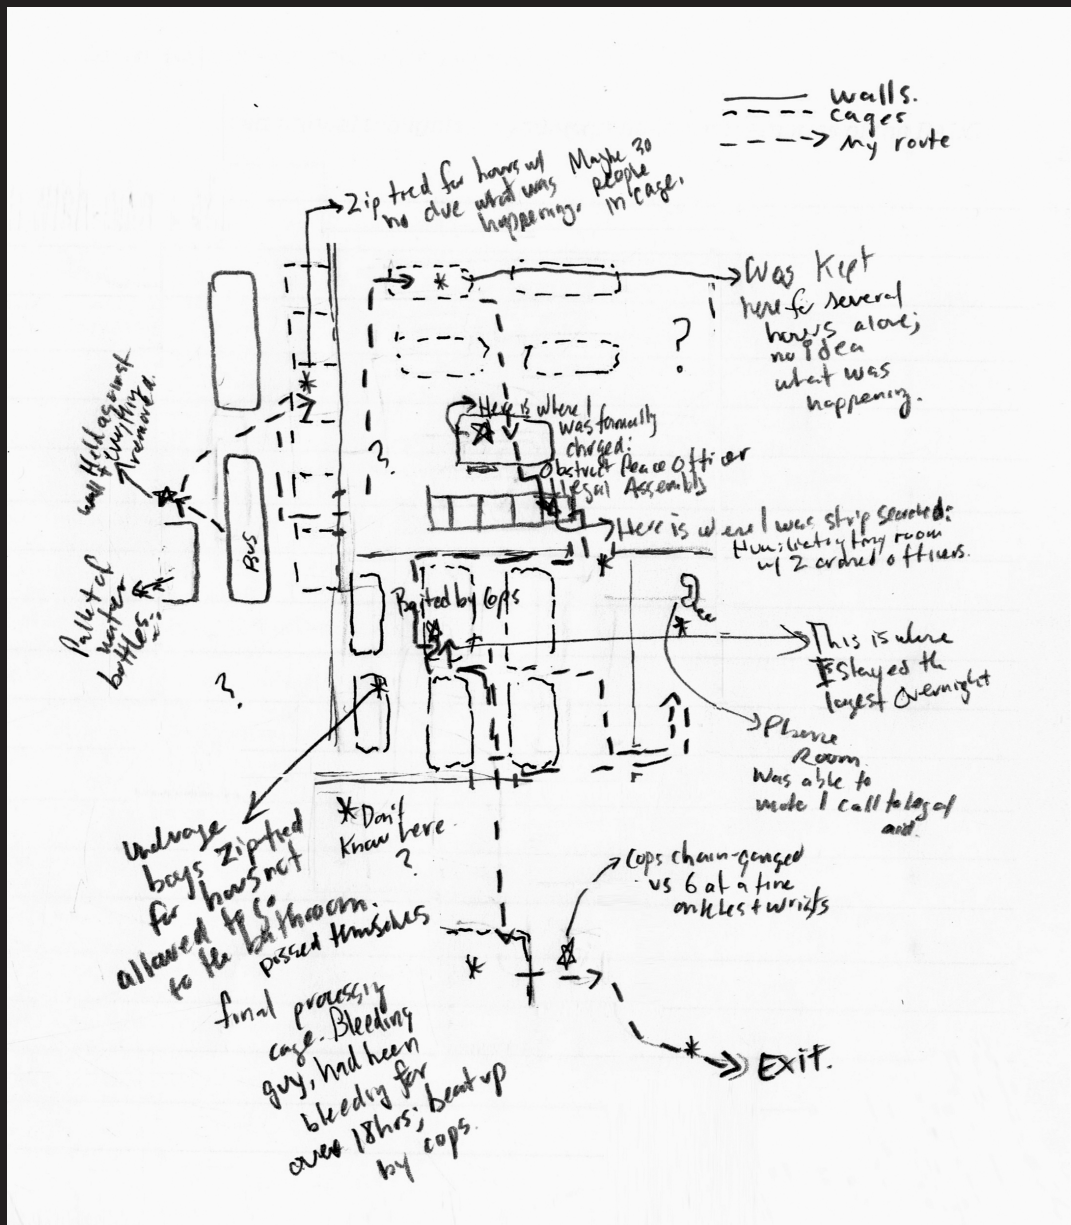 walls.
cages
My route
Zip tied for hours w/
no clue what was
happening.
Maybe 30
people
in cage.
Was Kept
here for several
hours alone;
no idea
what was
happening.
?
?
was Held against
wall
removed.
Here is where I
was formally
charged:
Obstruct Peace Officer
Illegal Assembly
Here is where I was strip searched:
Humiliating tiny room
w/ 2 armed officers.
BUS
Pallet of
water
bottles
?
Baited by Cops
This is where
I stayed the
longest overnight
Phone
Room.
Was able to
make 1 call to legal
aid.
Underage
boys zip-tied
for hours not
allowed to go
to the bathroom.
pissed themselves
*Don't
Know here
?
Cops chain-ganged
us 6 at a time
ankles + wrists
final processing
cage. Bleeding
guy, had been
bleeding for
over 18hrs; beat up
by cops.
EXIT.